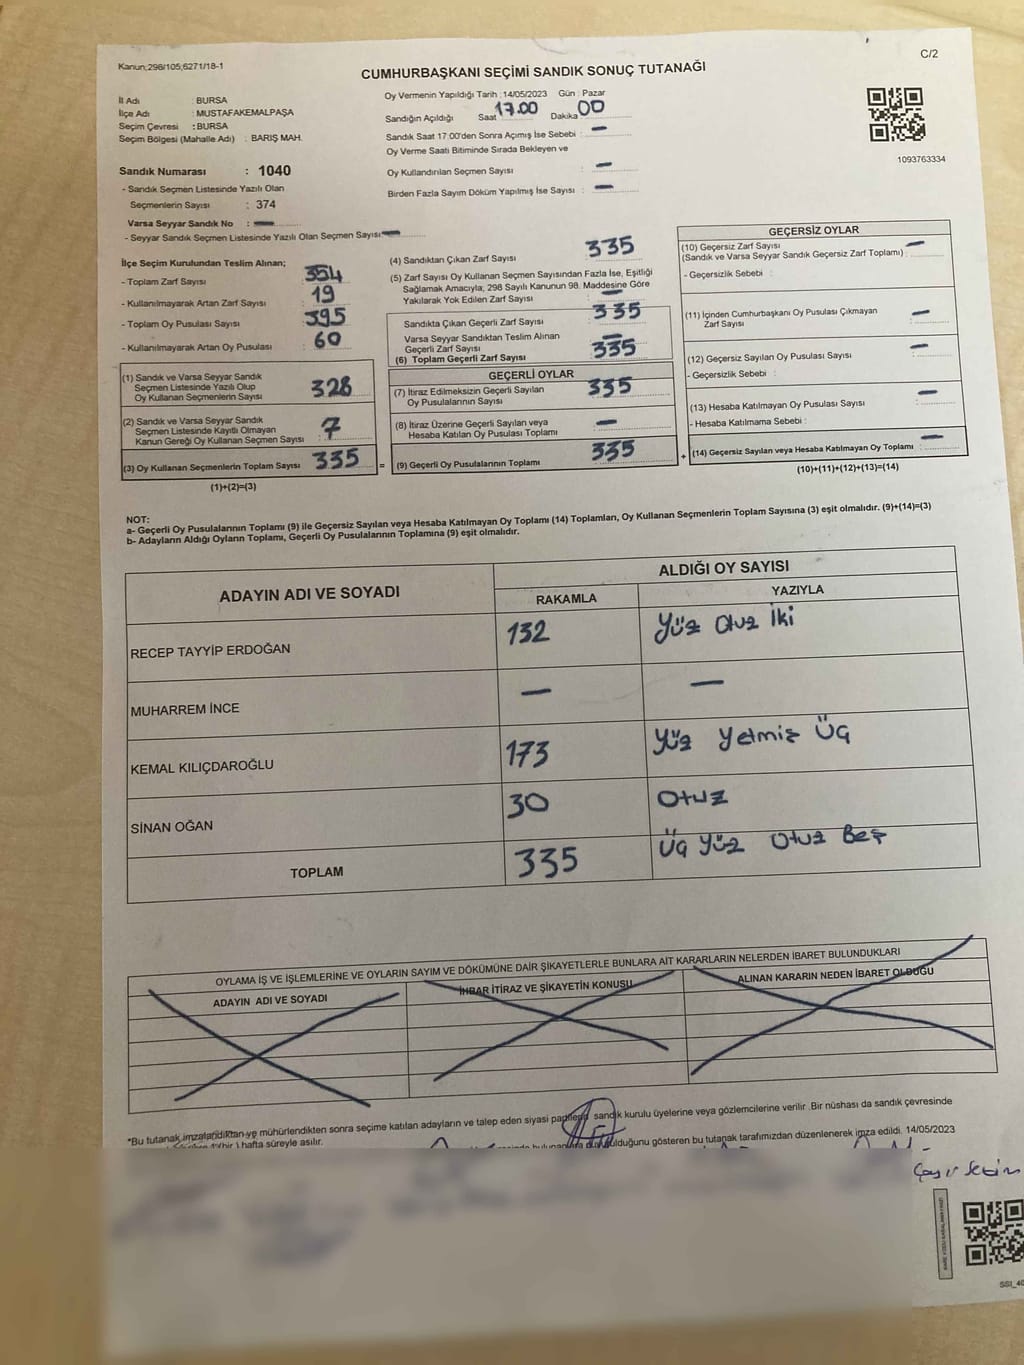 Kanun;298/105;6271/18-1
C/2
CUMHURBAŞKANI SEÇİMİ SANDIK SONUÇ TUTANAĞI
İl Adı : BURSA
İlçe Adı : MUSTAFAKEMALPAŞA
Seçim Çevresi : BURSA
Seçim Bölgesi (Mahalle Adı) : BARIŞ MAH.
Oy Vermenin Yapıldığı Tarih : 14/05/2023 Gün : Pazar
Sandığın Açıldığı Saat 17.00 Dakika 00
Sandık Saat 17:00'den Sonra Açımış İse Sebebi : —
Oy Verme Saati Bitiminde Sırada Bekleyen ve
Oy Kullandırılan Seçmen Sayısı : —
Birden Fazla Sayım Döküm Yapılmış İse Sayısı : —
1093763334
Sandık Numarası : 1040
- Sandık Seçmen Listesinde Yazılı Olan
Seçmenlerin Sayısı : 374
Varsa Seyyar Sandık No : —
- Seyyar Sandık Seçmen Listesinde Yazılı Olan Seçmen Sayısı: —
İlçe Seçim Kurulundan Teslim Alınan;
- Toplam Zarf Sayısı : 354
- Kullanılmayarak Artan Zarf Sayısı : 19
- Toplam Oy Pusulası Sayısı : 395
- Kullanılmayarak Artan Oy Pusulası : 60
(1) Sandık ve Varsa Seyyar Sandık
Seçmen Listesinde Yazılı Olup
Oy Kullanan Seçmenlerin Sayısı : 328
(2) Sandık ve Varsa Seyyar Sandık
Seçmen Listesinde Kayıtlı Olmayan
Kanun Gereği Oy Kullanan Seçmen Sayısı : 7
(3) Oy Kullanan Seçmenlerin Toplam Sayısı : 335
(1)+(2)=(3)
(4) Sandıktan Çıkan Zarf Sayısı : 335
(5) Zarf Sayısı Oy Kullanan Seçmen Sayısından Fazla İse, Eşitliği
Sağlamak Amacıyla, 298 Sayılı Kanunun 98. Maddesine Göre
Yakılarak Yok Edilen Zarf Sayısı : —
Sandıkta Çıkan Geçerli Zarf Sayısı : 335
Varsa Seyyar Sandıktan Teslim Alınan
Geçerli Zarf Sayısı : —
(6) Toplam Geçerli Zarf Sayısı : 335
GEÇERLİ OYLAR
(7) İtiraz Edilmeksizin Geçerli Sayılan
Oy Pusulalarının Sayısı : 335
(8) İtiraz Üzerine Geçerli Sayılan veya
Hesaba Katılan Oy Pusulası Toplamı : —
= (9) Geçerli Oy Pusulalarının Toplamı : 335
GEÇERSİZ OYLAR
(10) Geçersiz Zarf Sayısı
(Sandık ve Varsa Seyyar Sandık Geçersiz Zarf Toplamı) : —
- Geçersizlik Sebebi :
(11) İçinden Cumhurbaşkanı Oy Pusulası Çıkmayan
Zarf Sayısı : —
(12) Geçersiz Sayılan Oy Pusulası Sayısı : —
- Geçersizlik Sebebi :
(13) Hesaba Katılmayan Oy Pusulası Sayısı : —
- Hesaba Katılmama Sebebi :
+ (14) Geçersiz Sayılan veya Hesaba Katılmayan Oy Toplamı : —
(10)+(11)+(12)+(13)=(14)
NOT:
a- Geçerli Oy Pusulalarının Toplamı (9) ile Geçersiz Sayılan veya Hesaba Katılmayan Oy Toplamı (14) Toplamları, Oy Kullanan Seçmenlerin Toplam Sayısına (3) eşit olmalıdır. (9)+(14)=(3)
b- Adayların Aldığı Oyların Toplamı, Geçerli Oy Pusulalarının Toplamına (9) eşit olmalıdır.
ADAYIN ADI VE SOYADI
ALDIĞI OY SAYISI
RAKAMLA YAZIYLA
RECEP TAYYİP ERDOĞAN 132 Yüz Otuz İki
MUHARREM İNCE — —
KEMAL KILIÇDAROĞLU 173 Yüz Yetmiş Üç
SİNAN OĞAN 30 Otuz
TOPLAM 335 Üç Yüz Otuz Beş
OYLAMA İŞ VE İŞLEMLERİNE VE OYLARIN SAYIM VE DÖKÜMÜNE DAİR ŞİKAYETLERLE BUNLARA AİT KARARLARIN NELERDEN İBARET BULUNDUKLARI
ADAYIN ADI VE SOYADI İHBAR İTİRAZ VE ŞİKAYETİN KONUSU ALINAN KARARIN NEDEN İBARET OLDUĞU
*Bu tutanak imzalandıktan ve mühürlendikten sonra seçime katılan adayların ve talep eden siyasi partilerin sandık kurulu üyelerine veya gözlemcilerine verilir .Bir nüshası da sandık çevresinde
hafta süreyle asılır. gösteren bu tutanak tarafımızdan düzenlenerek imza edildi. 14/05/2023